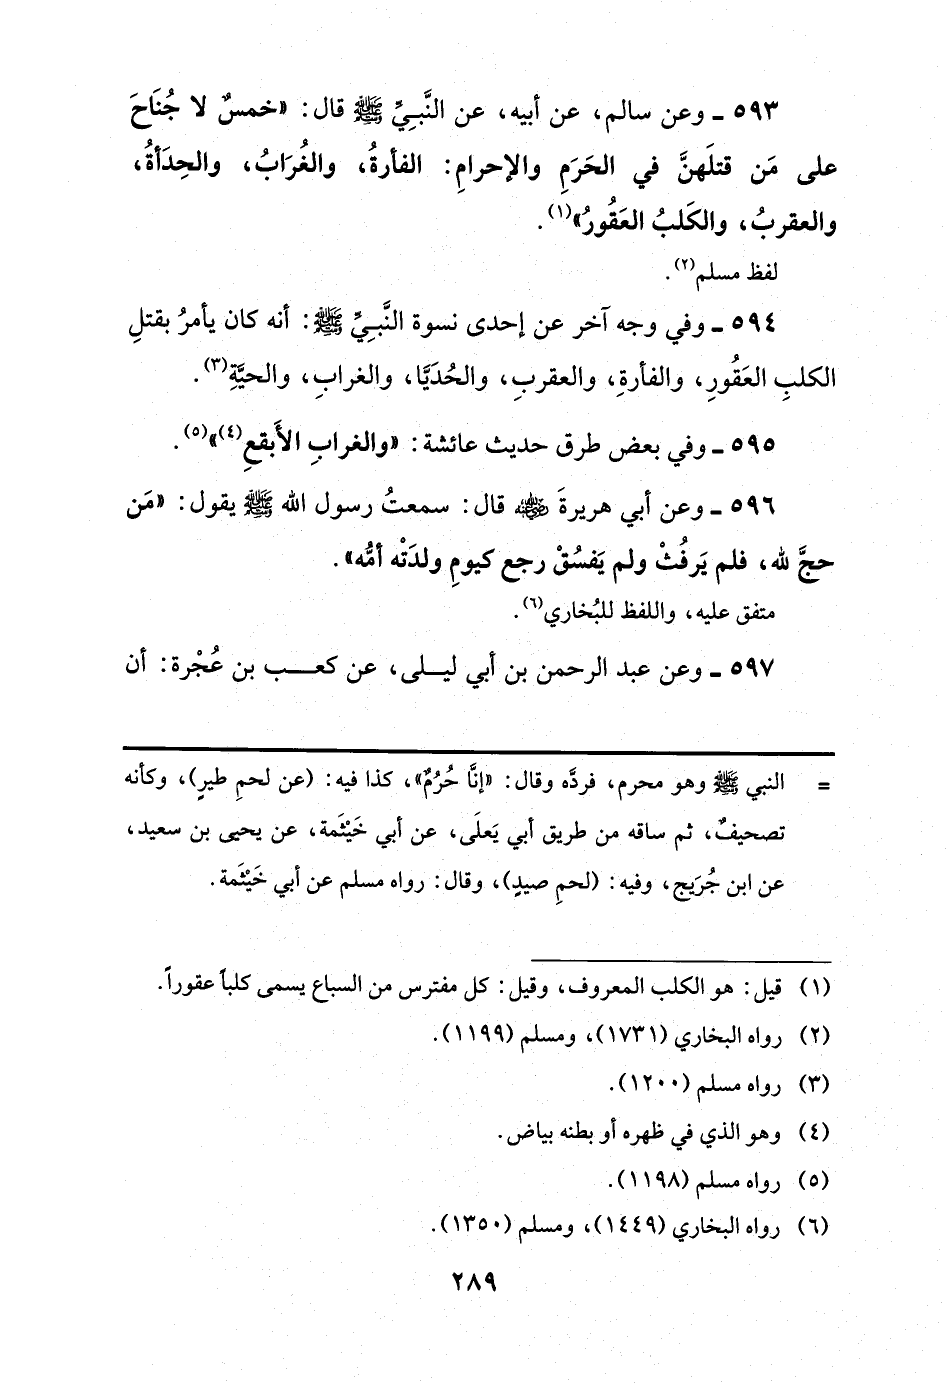 ٥٩٣ ـ وعن سالم، عن أبيه، عن النَّبيِّ ﷺ قال: «خمسٌ لا جُنَاحَ
على مَن قتلَهنَّ في الحَرَمِ والإحرامِ: الفأرةُ، والغُرَابُ، والحِدَأةُ،
والعقربُ، والكَلبُ العَقُورُ»(١).
لفظ مسلم(٢).
٥٩٤ ـ وفي وجه آخر عن إحدى نسوة النَّبيِّ ﷺ: أنه كان يأمرُ بقتلِ
الكلبِ العَقُورِ، والفأرةِ، والعقربِ، والحُدَيَّا، والغرابِ، والحيَّةِ(٣).
٥٩٥ ـ وفي بعض طرق حديث عائشة: «والغرابِ الأَبقعِ(٤)»(٥).
٥٩٦ ـ وعن أبي هريرةَ ﷺ قال: سمعتُ رسول الله ﷺ يقول: «مَن
حجَّ لله، فلم يَرفُثْ ولم يَفسُقْ رجع كيومِ ولدَتْه أمُّه».
متفق عليه، واللفظ للبُخاري(٦).
٥٩٧ ـ وعن عبد الرحمن بن أبي ليـلى، عن كعـــب بن عُجْرة: أن
= النبي ﷺ وهو محرم، فردَّه وقال: «إنَّا حُرُمٌ»، كذا فيه: (عن لحمِ طيرٍ)، وكأنه
تصحيفٌ، ثم ساقه من طريق أبي يَعلَى، عن أبي خَيْثَمة، عن يحيى بن سعيد،
عن ابن جُرَيج، وفيه: (لحمِ صيدٍ)، وقال: رواه مسلم عن أبي خَيْثَمة.
(١) قيل: هو الكلب المعروف، وقيل: كل مفترس من السباع يسمى كلباً عقوراً.
(٢) رواه البخاري (١٧٣١)، ومسلم (١١٩٩).
(٣) رواه مسلم (١٢٠٠).
(٤) وهو الذي في ظهره أو بطنه بياض.
(٥) رواه مسلم (١١٩٨).
(٦) رواه البخاري (١٤٤٩)، ومسلم (١٣٥٠).
٢٨٩